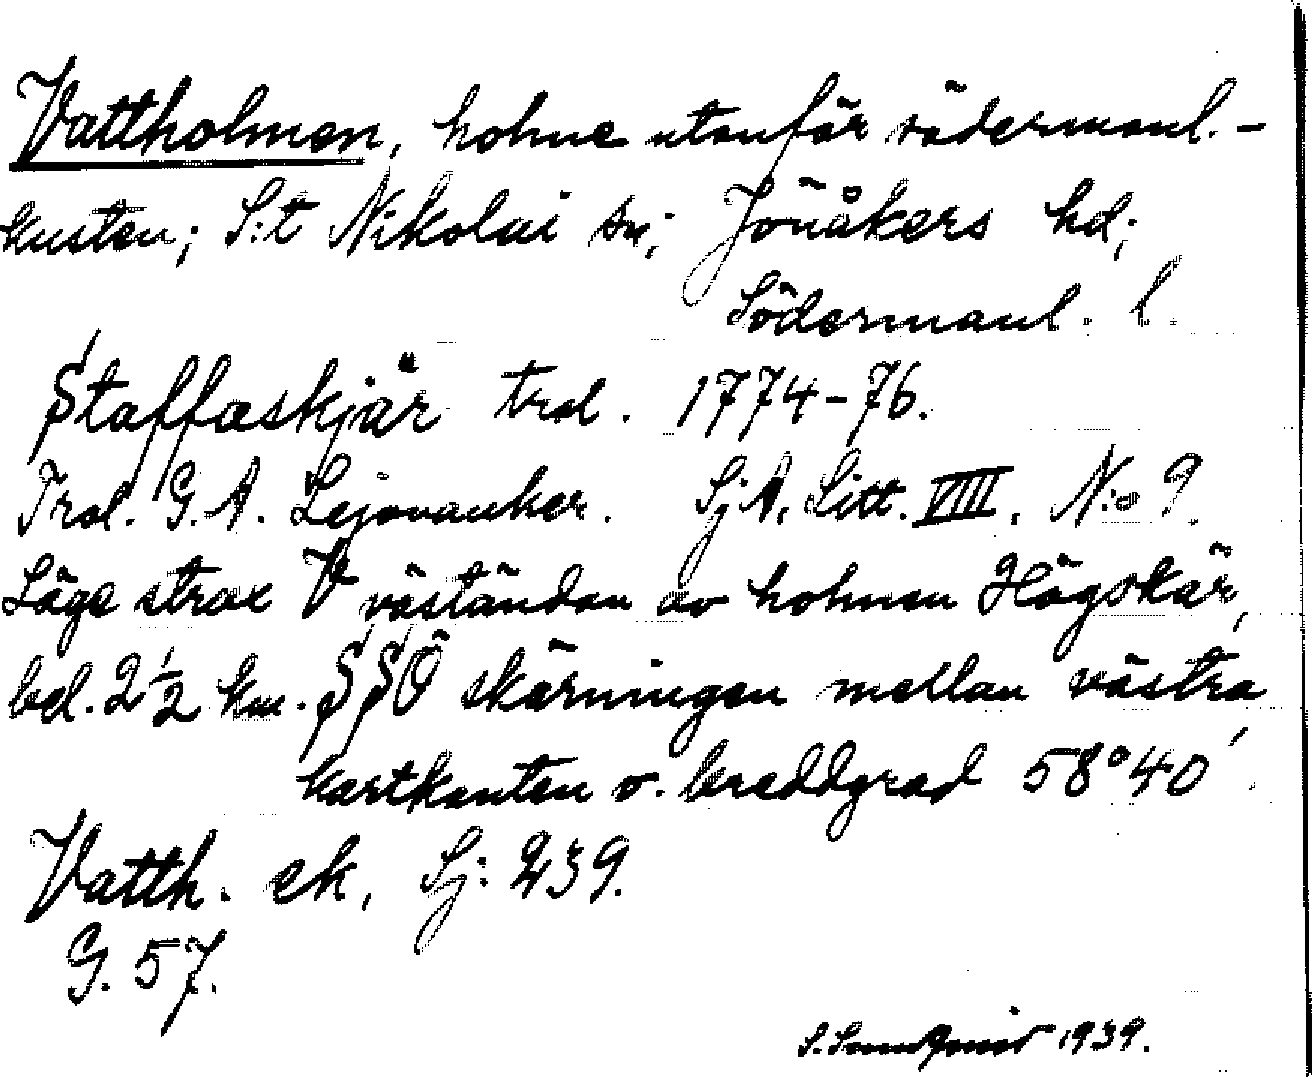 Vattholmen, holme utanför södermanl.-
kusten; S:t Nikolai sn; Jönåkers hd;
Södermanl. l.
Staffaskjär trol. 1774-76.
Trol. G. A. Lejonanker. SjA. Litt. VIII, N:o 9.
Läge strax V väständan av holmen Högskär,
bel. 2 1/2 km. SSÖ skärningen mellan västra
kartkanten o. breddgrad 58°40'.
Vatth. ek. Sj: 239.
G. 57.
S. Sundqvist 1939.